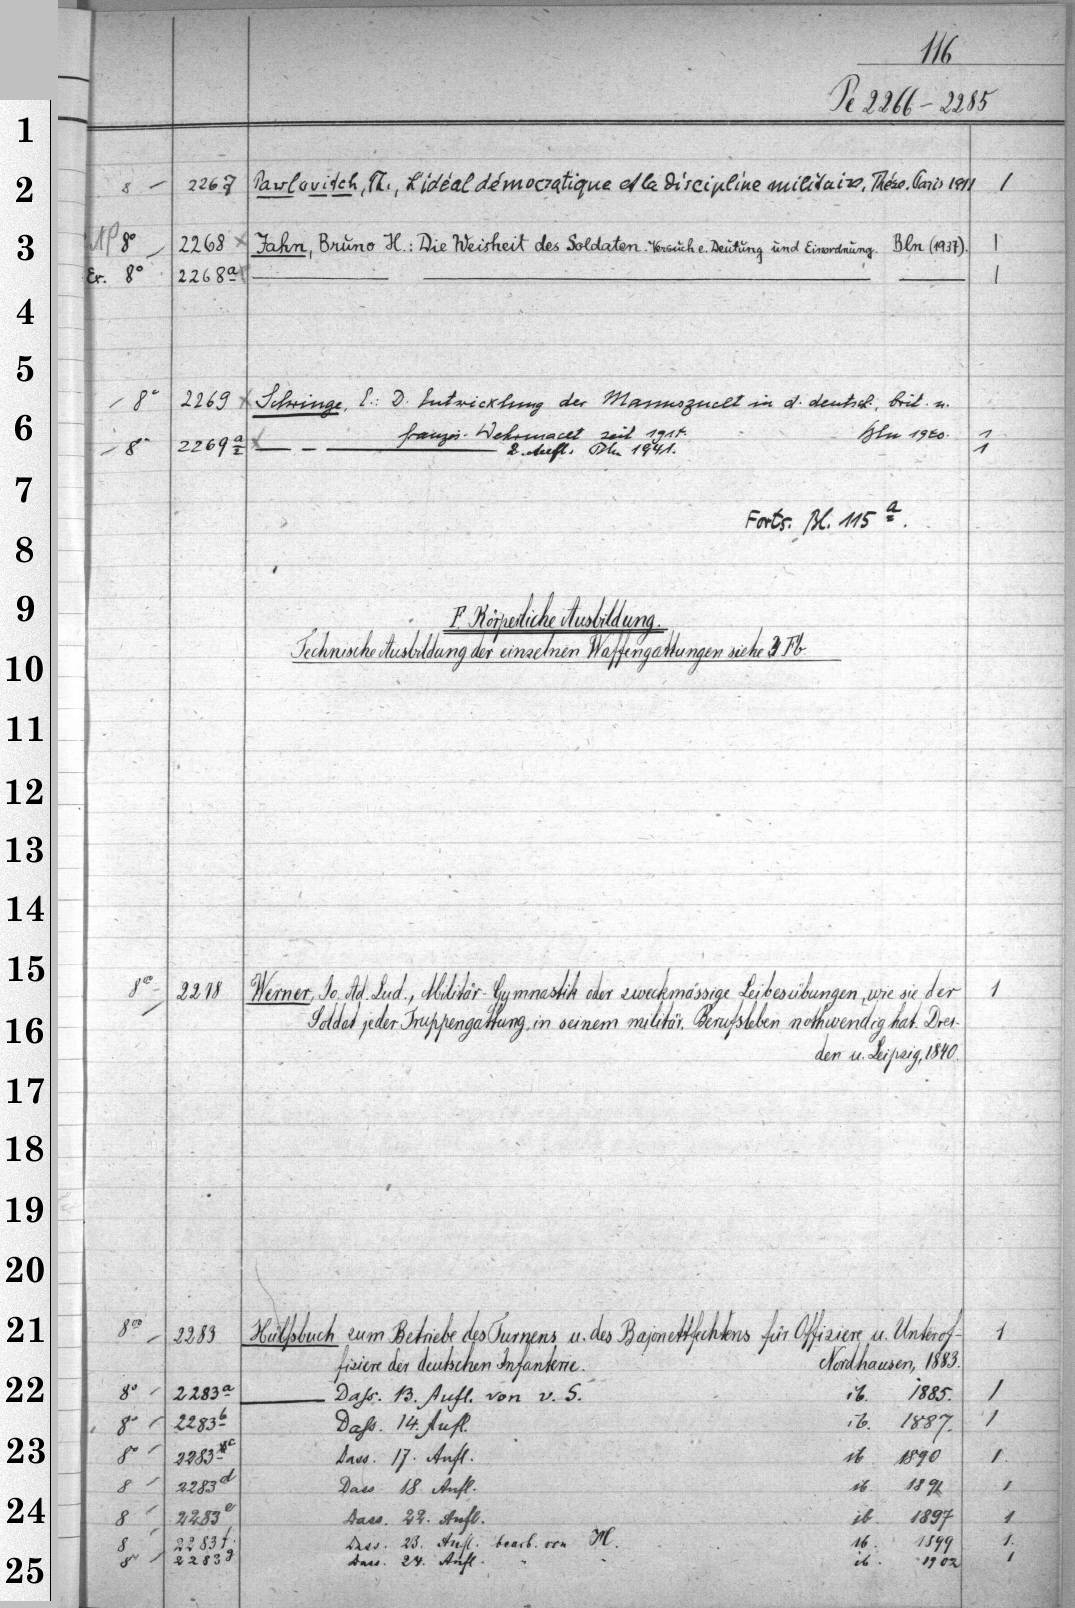 116
Pe 2266 - 2285
1
2 8 2267 Pawlovitch, Th., L'idéal démocratique et la discipline militaire, Thèse. Paris 1911 1
3 8° 2268 Jahn, Bruno H.: Die Weisheit des Soldaten. Versuch e. Deutung und Einordnung. Bln (1937). 1
Er. 8° 2268a 1
4
5
8° 2269 Schwinge, E.: D. Entwicklung der Mannszucht in d. deutsch., brit. u.
6 französ. Wehrmacht seit 1914. Bln 1940. 1
8° 2269a 2. Aufl. Bln 1941. 1
7
Forts. Bl. 115a.
8
9 F Körperliche Ausbildung.
10 Technische Ausbildung der einzelnen Waffengattungen siehe Fb
11
12
13
14
15 8° 2278 Werner, Jo. Ad. Lud., Militär-Gymnastik oder zweckmässige Leibesübungen, wie sie der 1
16 Soldat jeder Truppengattung in seinem militär. Berufsleben nothwendig hat. Dres-
den u. Leipzig, 1840.
17
18
19
20
21 8° 2283 Hülfsbuch zum Betriebe des Turnens u. des Bajonettfechtens für Offiziere u. Unterof- 1
fiziere der deutschen Infanterie. Nordhausen, 1883.
22 8° 2283a Dass. 13. Aufl. von v. S. ib. 1885. 1
8° 2283b Dass. 14. Aufl. ib. 1887. 1
23 8° 2283c Dass. 17. Aufl. ib 1890 1
8 2283d Dass 18 Aufl. ib 1891 1
24 8 2283e Dass. 22. Aufl. ib 1897 1
8 2283f Dass. 23. Aufl. bearb. von H. ib. 1899 1.
25 8° 2283g Dass. 24. Aufl. ib. 1902 1